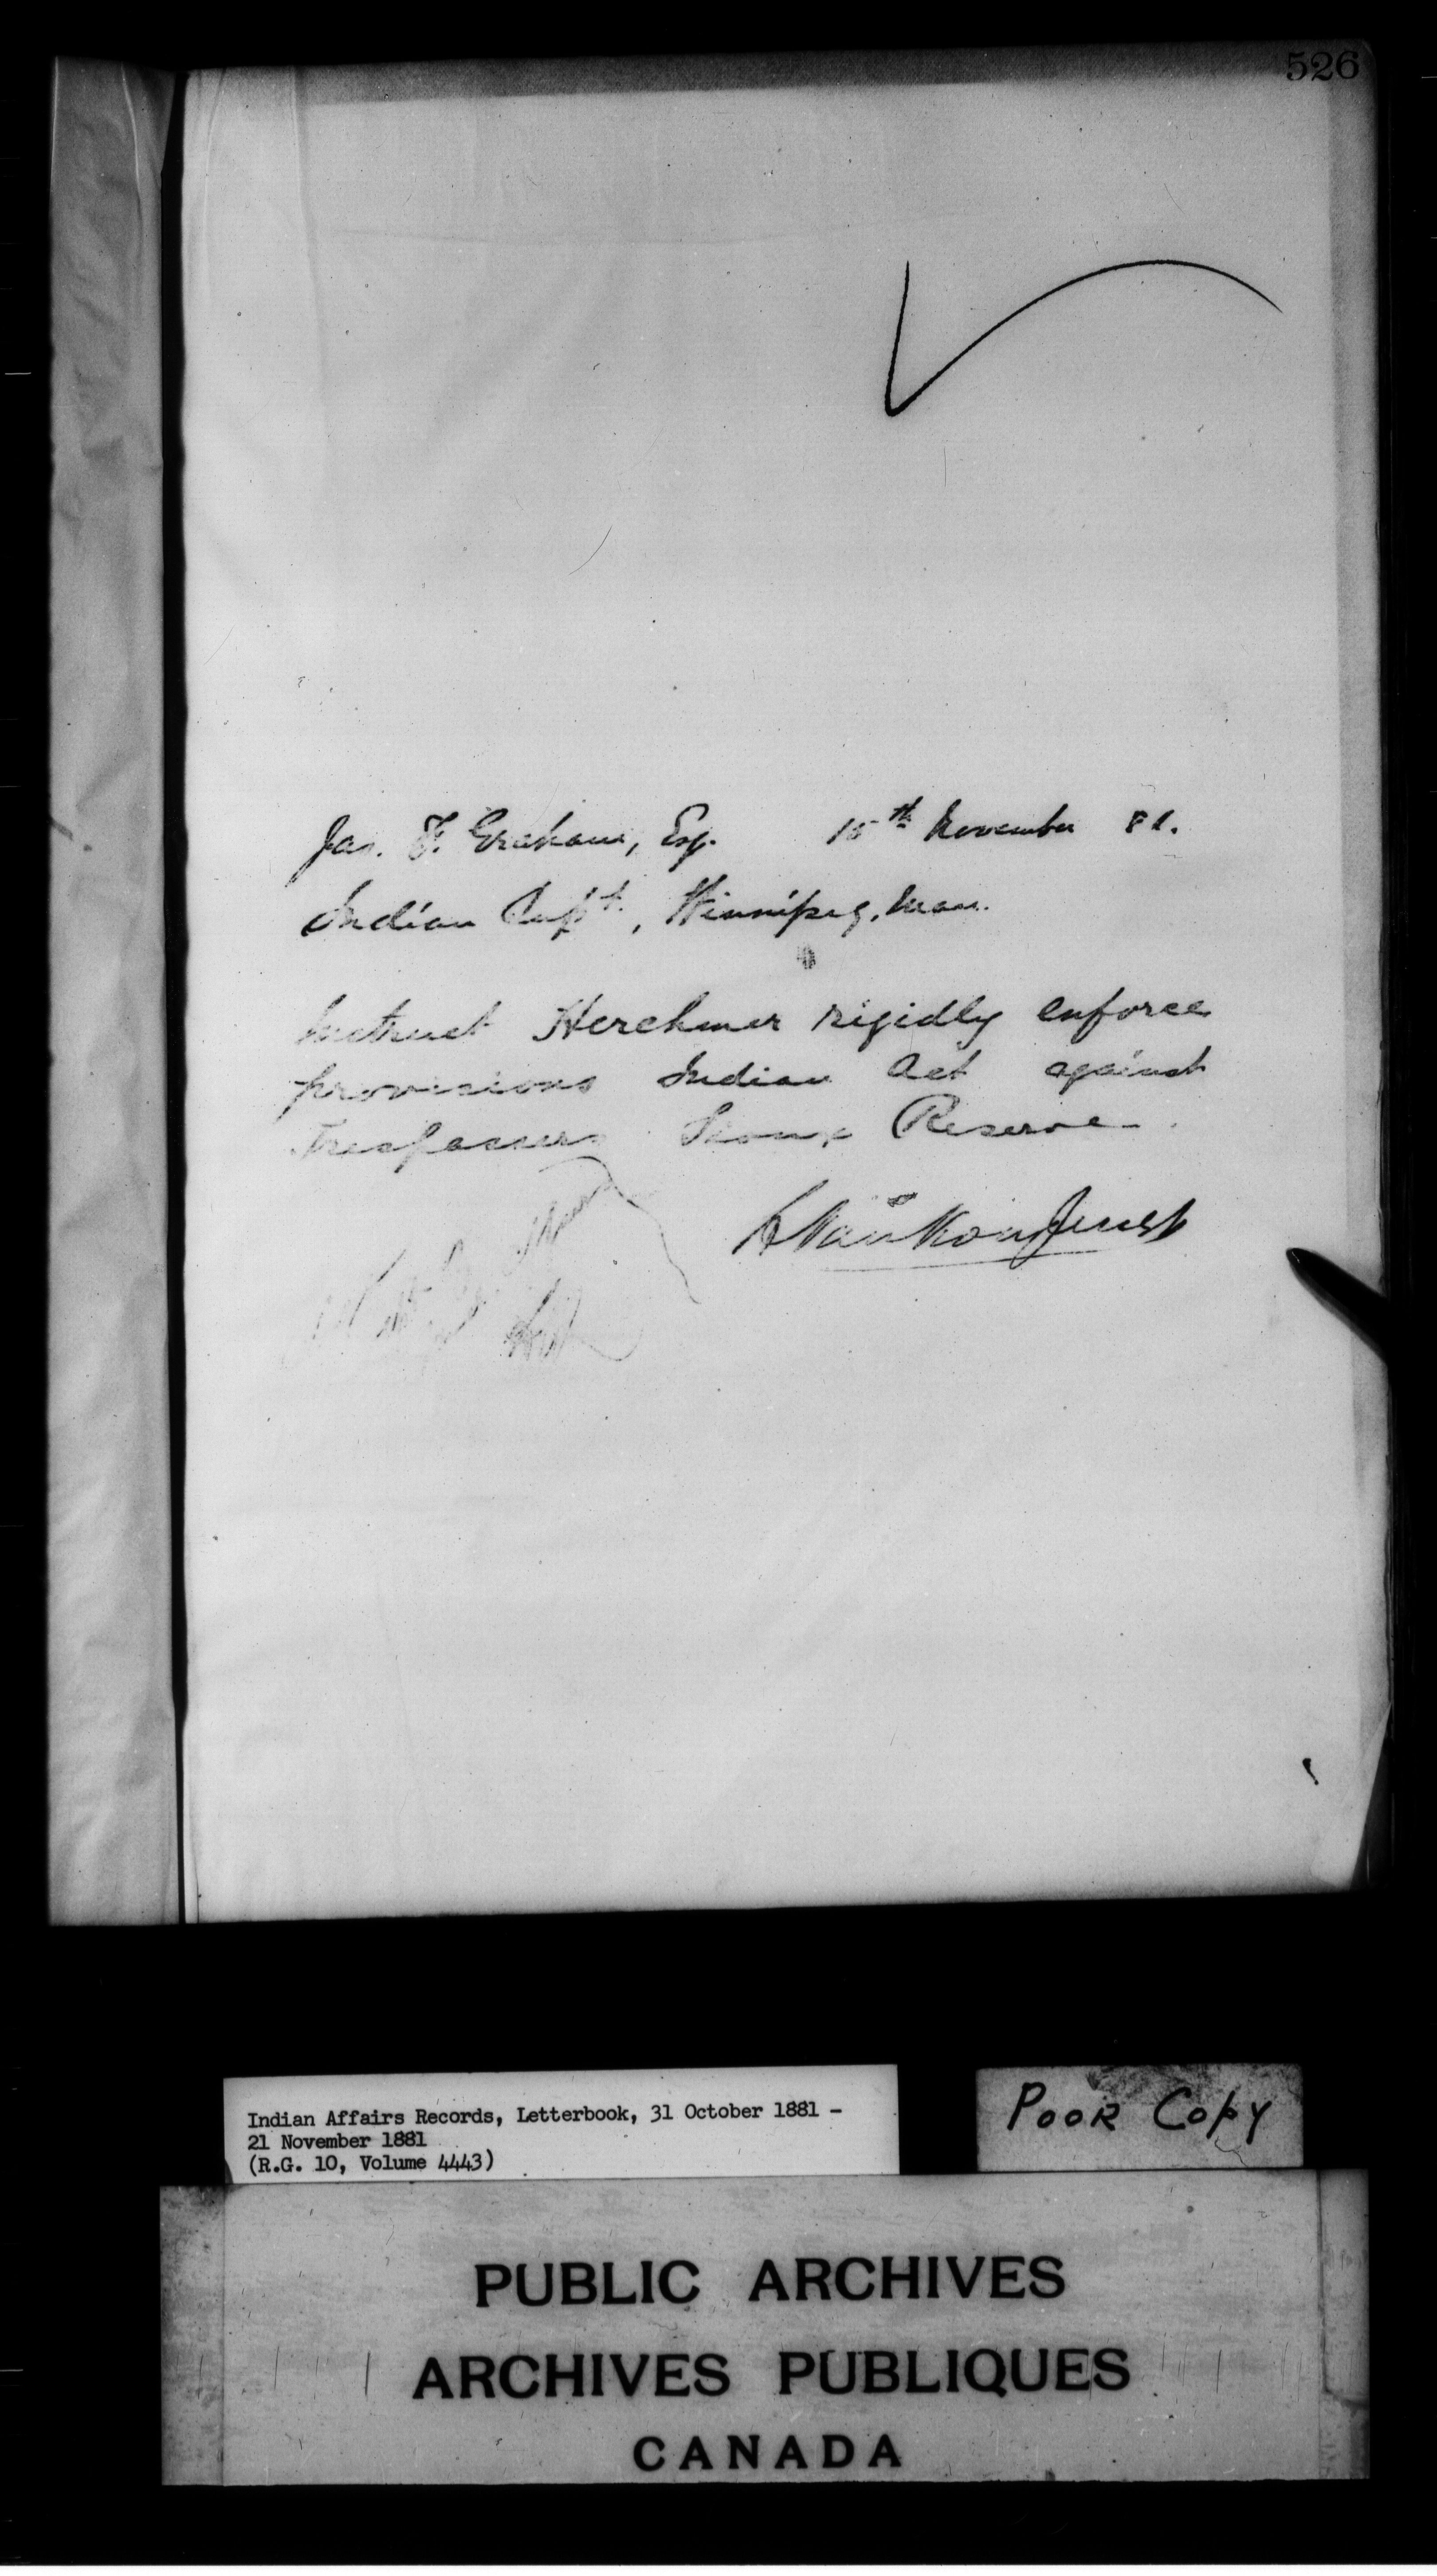 526
Jas. F. Graham, Esq. 15th November 81.
Indian Supt., Winnipeg, Man.
Instruct Herchmer rigidly enforce
provisions Indian Act against
Trespassers Sioux Reserve.
L Vankoughnet
Indian Affairs Records, Letterbook, 31 October 1881 -
21 November 1881
(R.G. 10, Volume 4443)
POOR COPY
PUBLIC ARCHIVES
ARCHIVES PUBLIQUES
CANADA